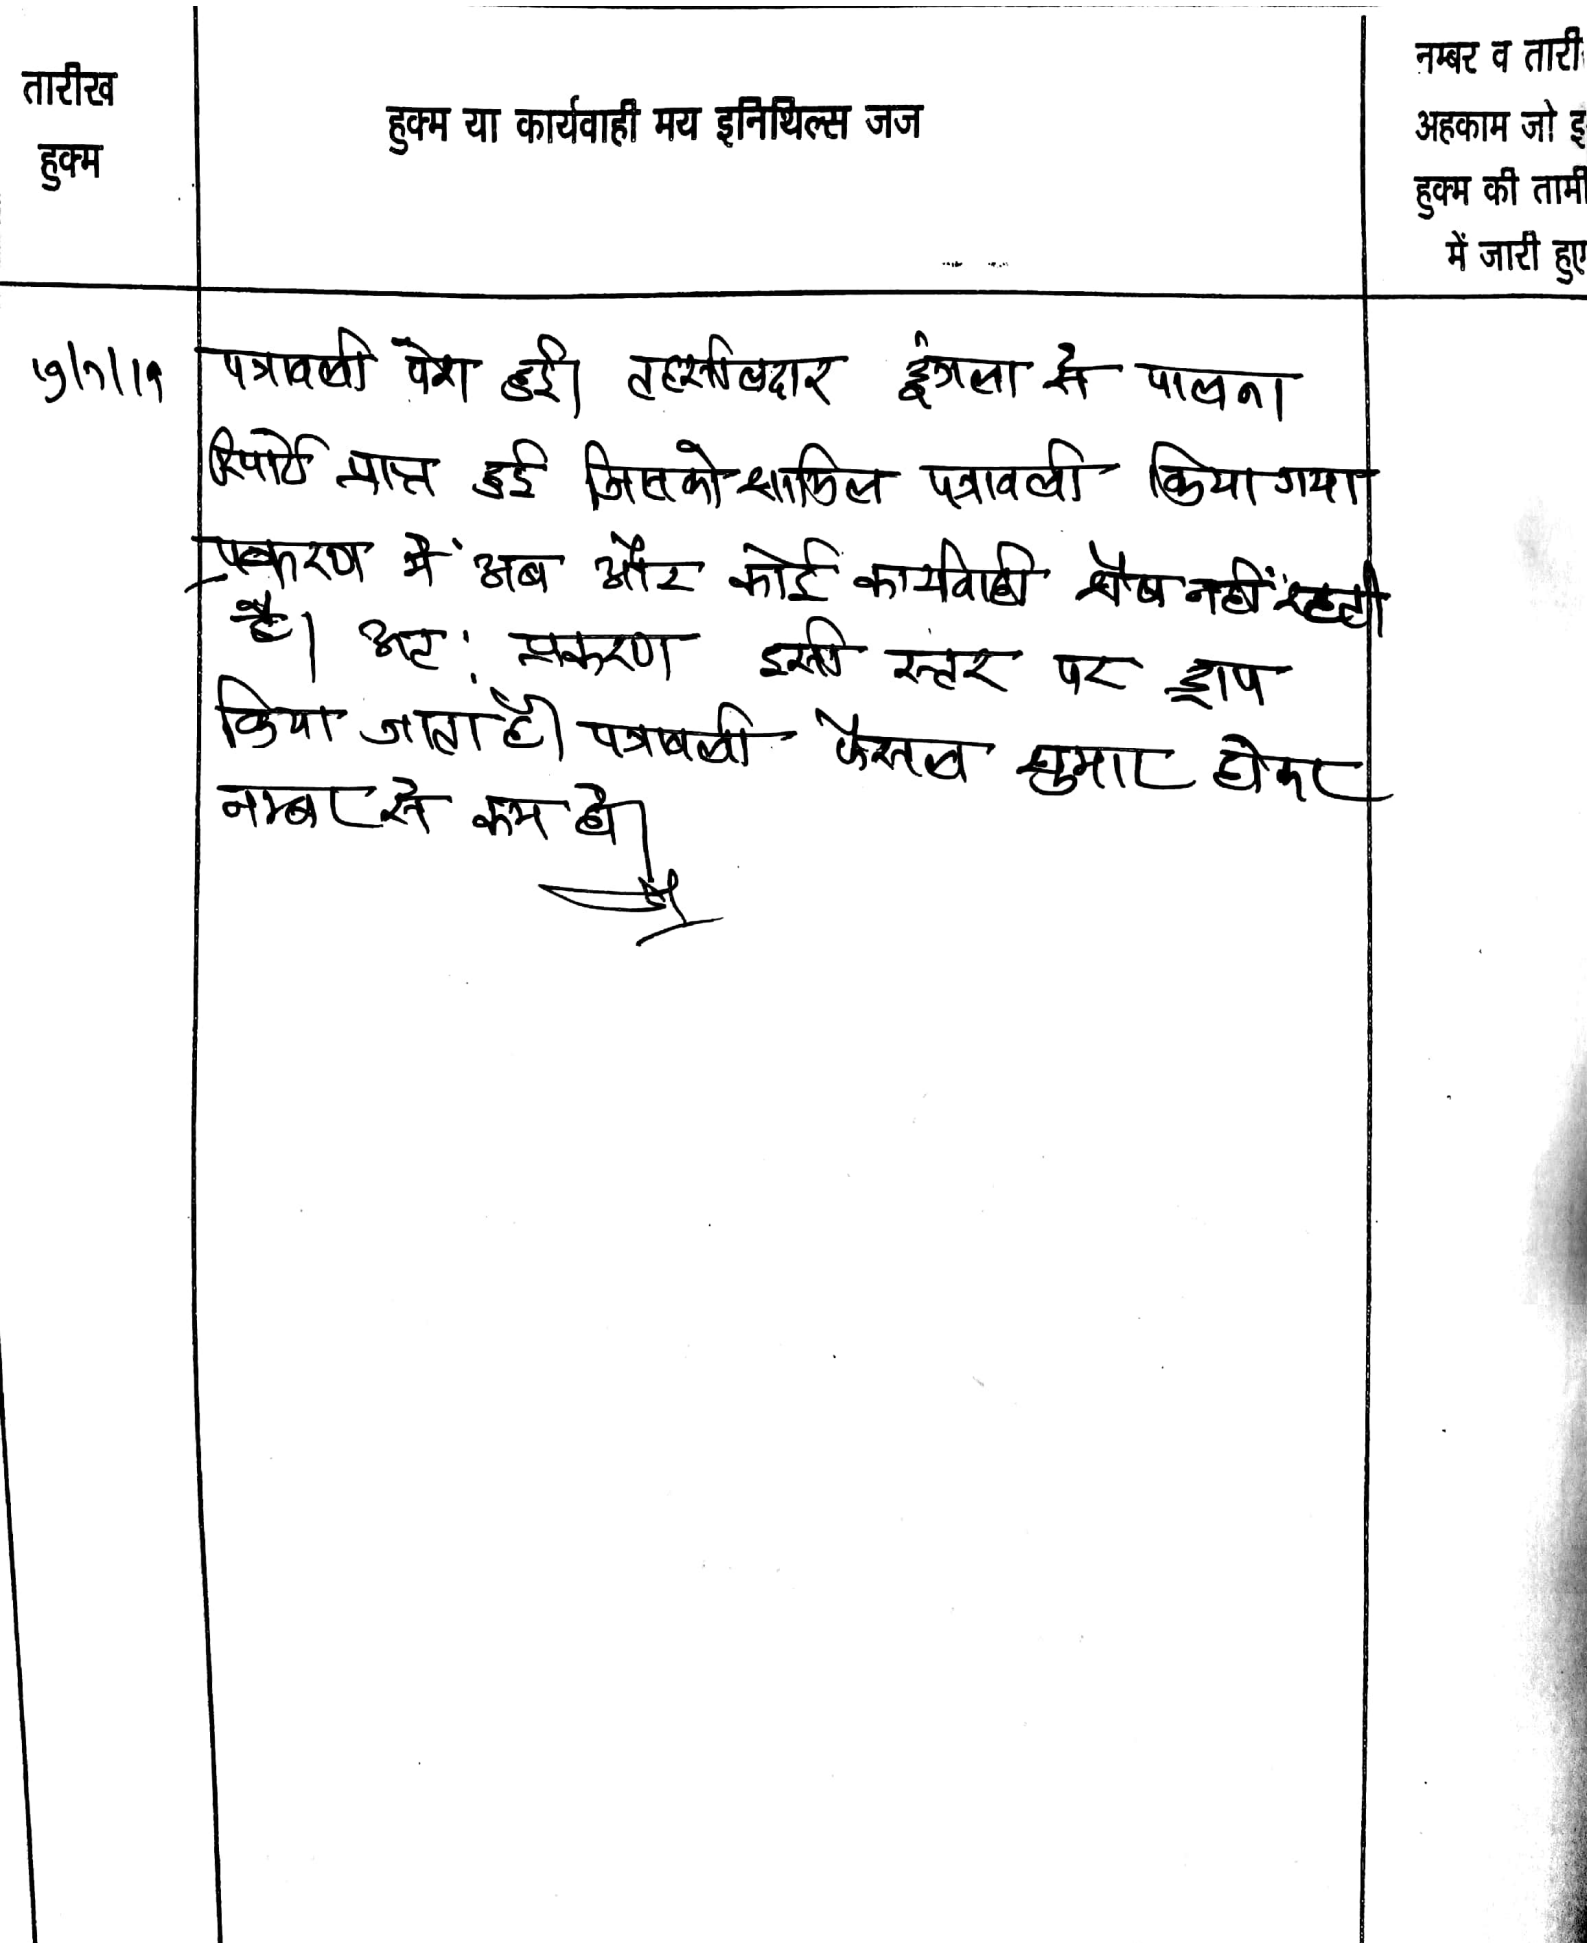 तारीख
हुक्म
हुक्म या कार्यवाही मय इनिथिल्स जज
नम्बर व तारी
अहकाम जो इ
हुक्म की तामी
में जारी हुए
पत्रावली पेश हुई। तहसीलदार डूंगला से पालना
रिपोर्ट प्राप्त हुई जिसको शामिल पत्रावली किया गया
प्रकरण में अब और कोई कार्यवाही शेष नहीं रहती
है। अतः प्रकरण इसी स्तर पर ड्राप
किया जाता है। पत्रावली फैसल शुमार होकर
नम्बर से कम हो।